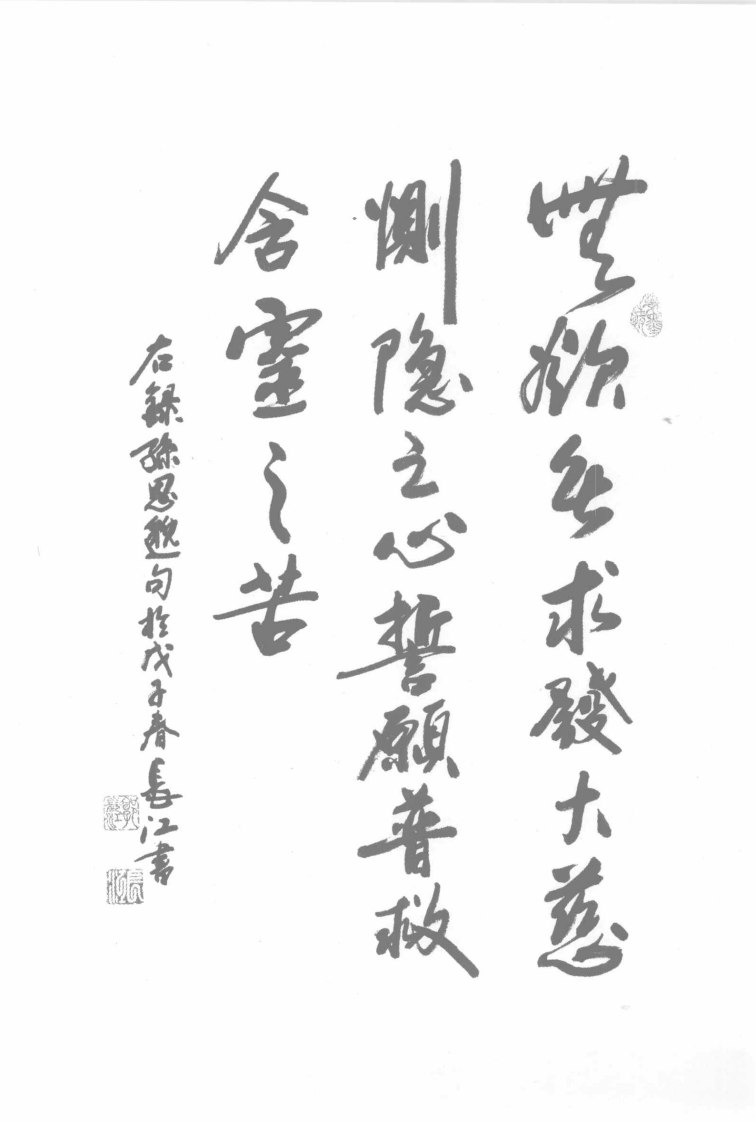 無欲無求發大慈
惻隐之心誓願普救
含靈之苦
右録孫思邈句於戊子春長江書